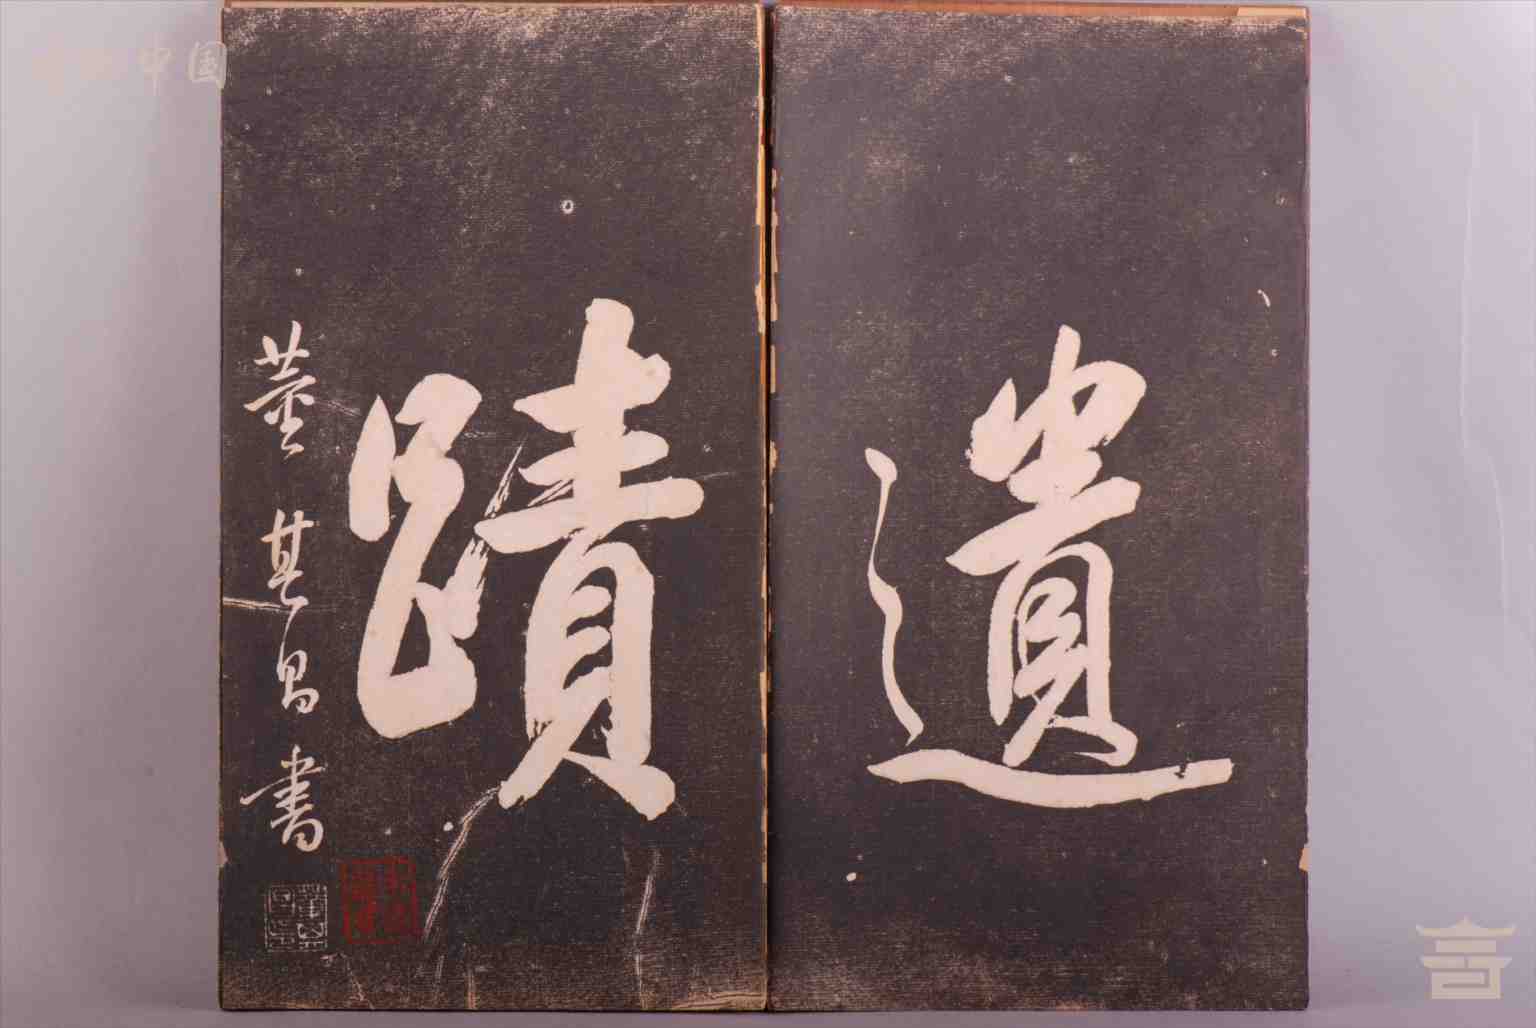 遺
蹟
董其昌書
中国